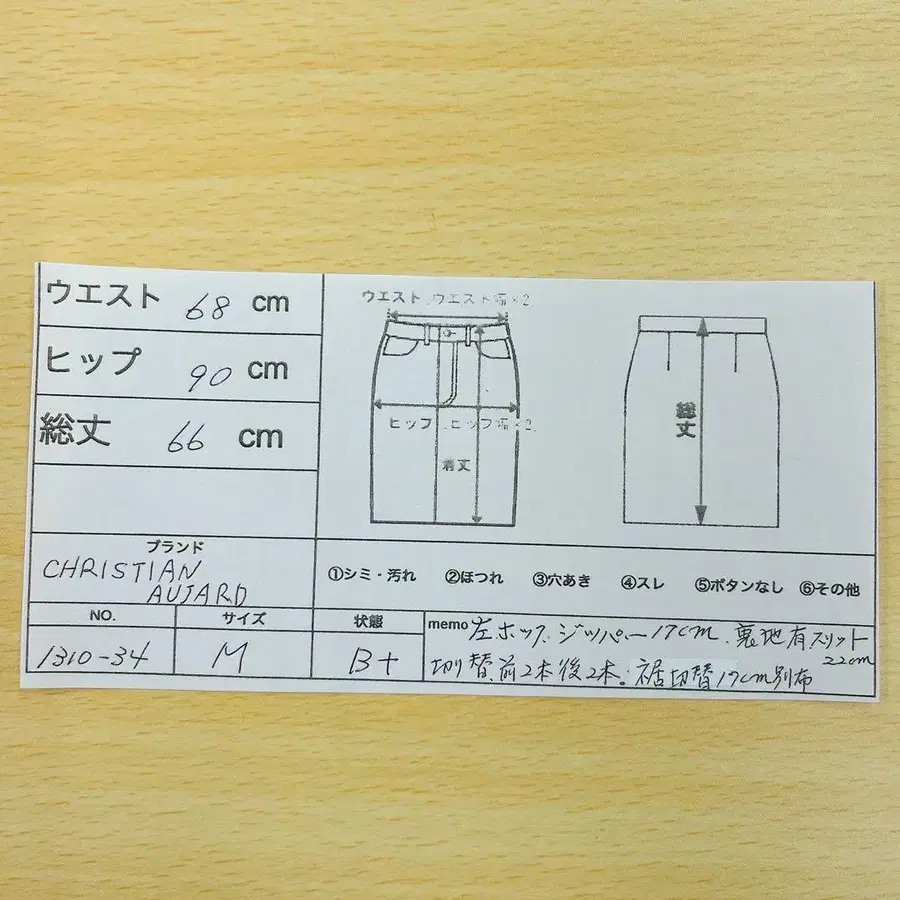 ウエスト 68 cm
ヒップ 90 cm
総丈 66 cm
ウエスト ウエスト幅×2
ヒップ ヒップ幅×2
着丈
総丈
ブランド
CHRISTIAN
AUJARD
①シミ・汚れ ②ほつれ ③穴あき ④スレ ⑤ボタンなし ⑥その他
NO. サイズ 状態
1310-34 M B+
memo 左ホック、ジッパー17cm、裏地有スリット
22cm
切り替前2本後2本。裾切替17cm別布